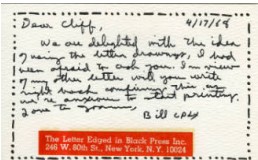 Dear Cliff, 4/17/68
We are delighted with the idea
of using the letter drawings, I had
been afraid to ask you. In view
of my other letter will you write
right back confirming this, as
we're anxious to that printing.
Love to
Bill
The Letter Edged in Black Press Inc.
246 W. 80th St., New York, N.Y. 10024